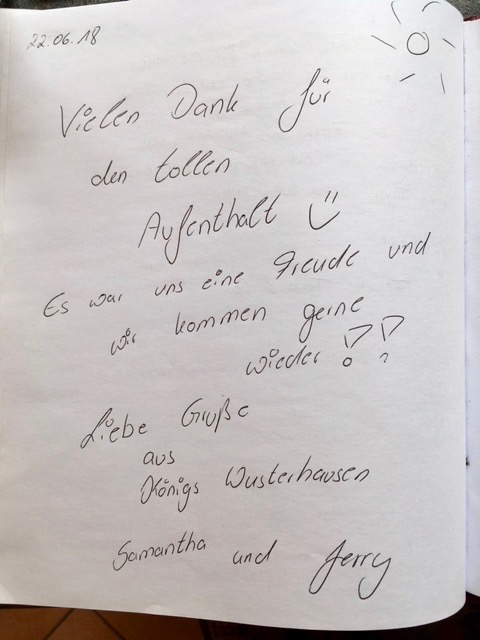 22.06.18
Vielen Dank für
den tollen
Aufenthalt Ü
Es war uns eine Freude und
wir kommen gerne
wieder !!
Liebe Grüße
aus
Königs Wusterhausen
Samantha und Jerry